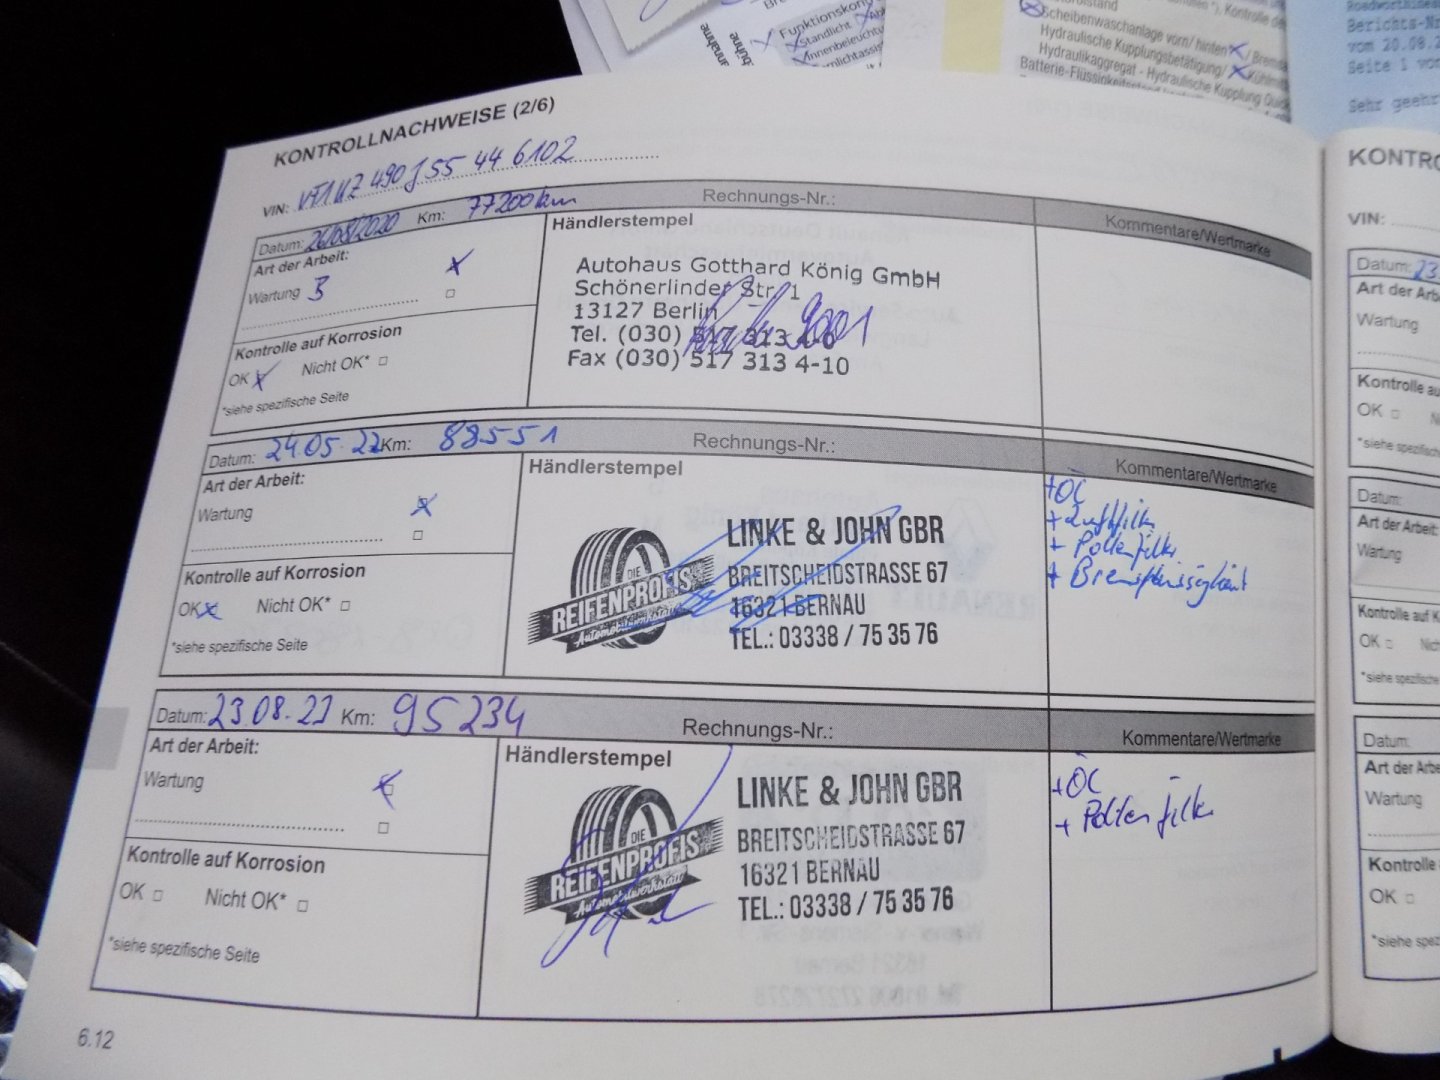 Funktionskon
Standlicht
Innenbeleuchtu
Scheibenwaschanlage vorn/ hinten
Hydraulische Kupplungsbetätigung/
Hydraulikaggregat - Hydraulische Kupplung Quick
Berichts-Nr
vom 20.08.2
Seite 1 von
Sehr geehr
KONTROLLNACHWEISE (2/6)
VIN: VF1KZ490J55446102
Datum: 26/08/2020 Km: 77200km Rechnungs-Nr.: Kommentare/Wertmarke
Art der Arbeit:
Wartung B
Kontrolle auf Korrosion
OK Nicht OK*
*siehe spezifische Seite
Händlerstempel
Autohaus Gotthard König GmbH
Schönerlinder Str. 1
13127 Berlin
Tel. (030) 517 313 4-0
Fax (030) 517 313 4-10
Datum: 24.05.22 Km: 88551 Rechnungs-Nr.: Kommentare/Wertmarke
Art der Arbeit:
Wartung
Kontrolle auf Korrosion
OK Nicht OK*
*siehe spezifische Seite
Händlerstempel
DIE
REIFENPROFIS
Automobilwerkstatt
LINKE & JOHN GBR
BREITSCHEIDSTRASSE 67
16321 BERNAU
TEL.: 03338 / 75 35 76
+ Öl
+ Luftfilter
+ Pollenfilter
+ Bremsflüssigkeit
Datum: 23.08.23 Km: 95234 Rechnungs-Nr.: Kommentare/Wertmarke
Art der Arbeit:
Wartung
Kontrolle auf Korrosion
OK Nicht OK*
*siehe spezifische Seite
Händlerstempel
DIE
REIFENPROFIS
Automobilwerkstatt
LINKE & JOHN GBR
BREITSCHEIDSTRASSE 67
16321 BERNAU
TEL.: 03338 / 75 35 76
+ Öl
+ Pollenfilter
6.12
KONTRO
VIN:
Datum: 23.
Art der Arb
Wartung
Kontrolle au
OK
*siehe spezifisch
Datum:
Art der Arbeit:
Wartung
Kontrolle auf K
OK Nich
*siehe spezifische
Datum:
Art der Arbe
Wartung
Kontrolle
OK
*siehe spez